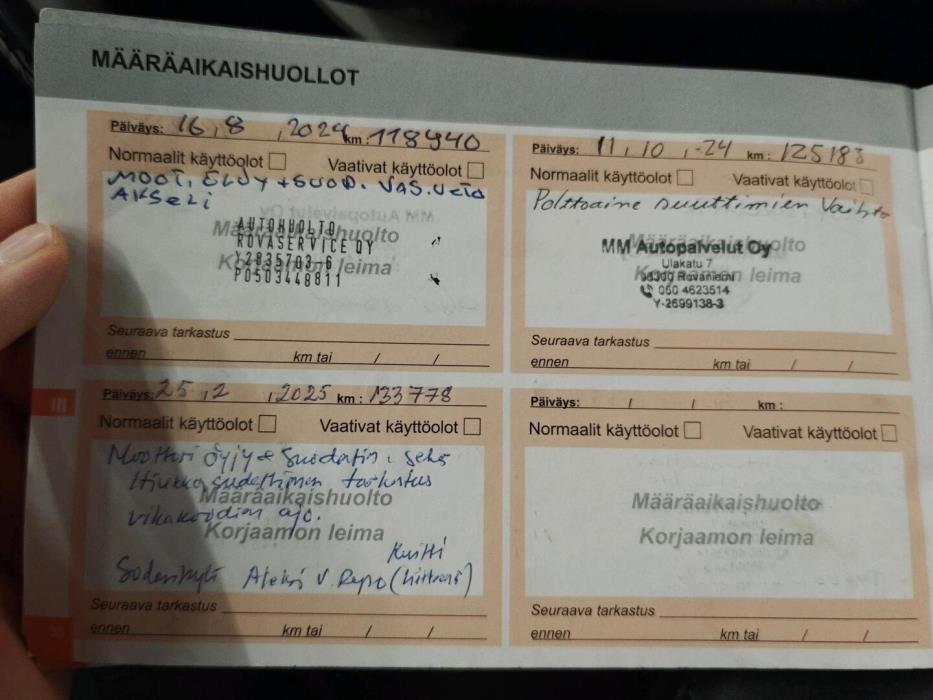 MÄÄRÄAIKAISHUOLLOT
Päiväys: 16,8 ,2024 km: 118940
Normaalit käyttöolot Vaativat käyttöolot
MOOT. ÖLJY + SUOD. VAS. VETO
AKSELI
Määräaikaishuolto
Korjaamon leima
AUTOHUOLTO
ROVASERVICE OY
Y2835703-6
P0503448811
Seuraava tarkastus
ennen km tai / /
Päiväys: 11, 10, -24 km: 125183
Normaalit käyttöolot Vaativat käyttöolot
Polttoaine suuttimien Vaihto
Määräaikaishuolto
Korjaamon leima
MM Autopalvelut Oy
Ulakatu 7
Rovaniemi
050 4623514
Y-2699138-3
Seuraava tarkastus
ennen km tai / /
Päiväys: 25,2 ,2025 km: 133778
Normaalit käyttöolot Vaativat käyttöolot
Moottori öljy + Suodatin, sekä
Hiukkassuodattimen tarkastus
vikakoodien ajo.
Määräaikaishuolto
Korjaamon leima
Kuitti
Aleksi V. Repo
Seuraava tarkastus
ennen km tai / /
Päiväys: / / km:
Normaalit käyttöolot Vaativat käyttöolot
Määräaikaishuolto
Korjaamon leima
Seuraava tarkastus
ennen km tai / /
III